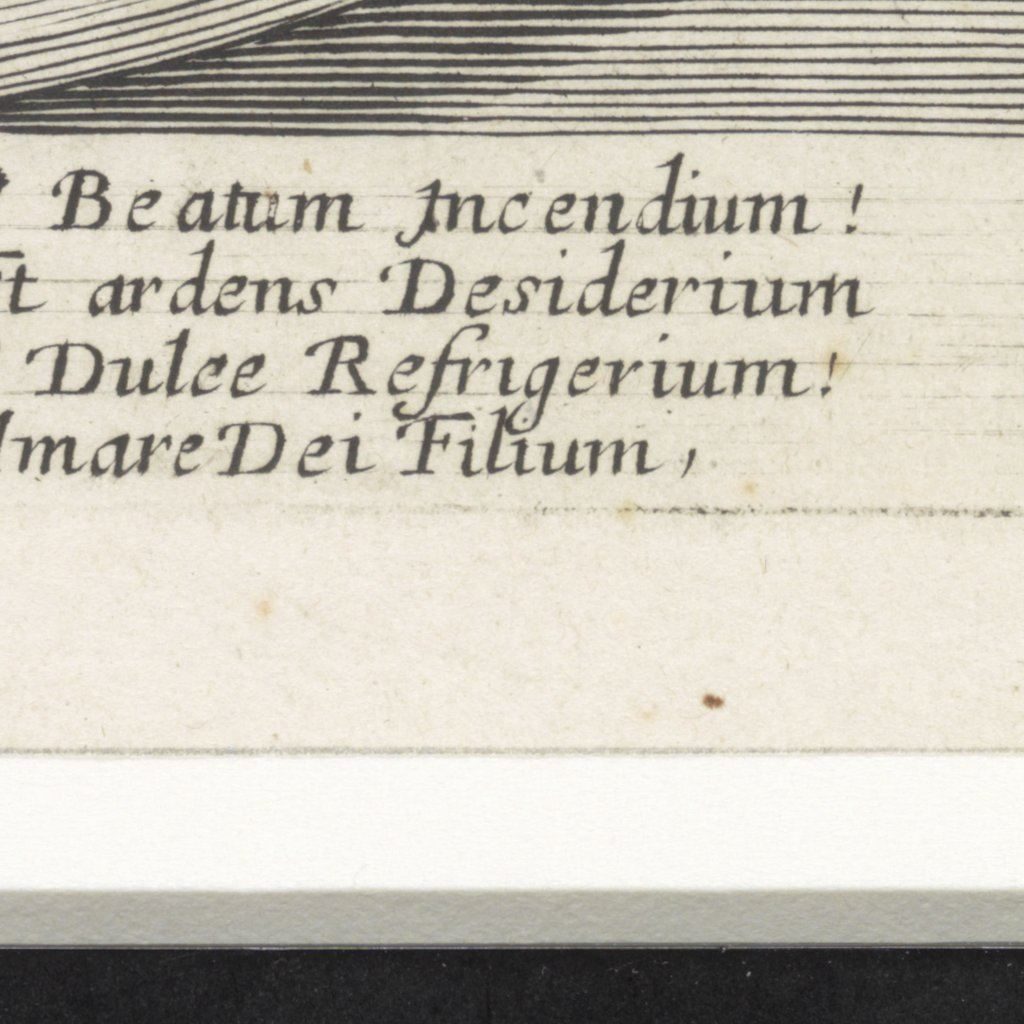 Beatum Incendium!
Et ardens Desiderium
Dulce Refrigerium!
Amare Dei Filium,